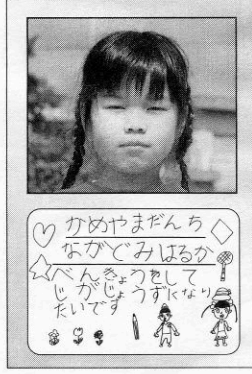 かめやまだんち
ながどみはるか
べんきょうをして
じがじょうずになり
たいです